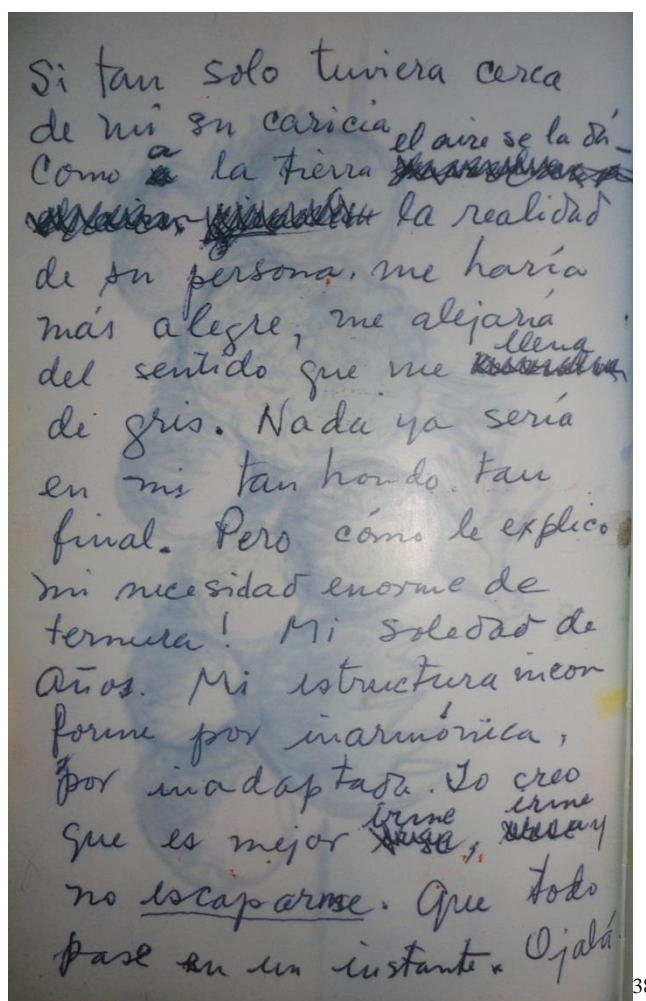 Si tan solo tuviera cerca
de mí su caricia
como a la tierra el aire se la dá-
la realidad
de su persona, me haría
más alegre, me alejaría
del sentido que me llena
de gris. Nada ya sería
en mi tan hondo. tan
final. Pero cómo le explico
mi necesidad enorme de
ternura! Mi soledad de
Años. Mi estructura incon
forme por inarmónica,
por inadaptada. Yo creo
que es mejor irme, irme y
no escaparme. Que todo
pase en un instante. Ojalá
38